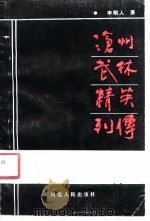 著
滄州
武林
精英
列傳
河北人民出版社